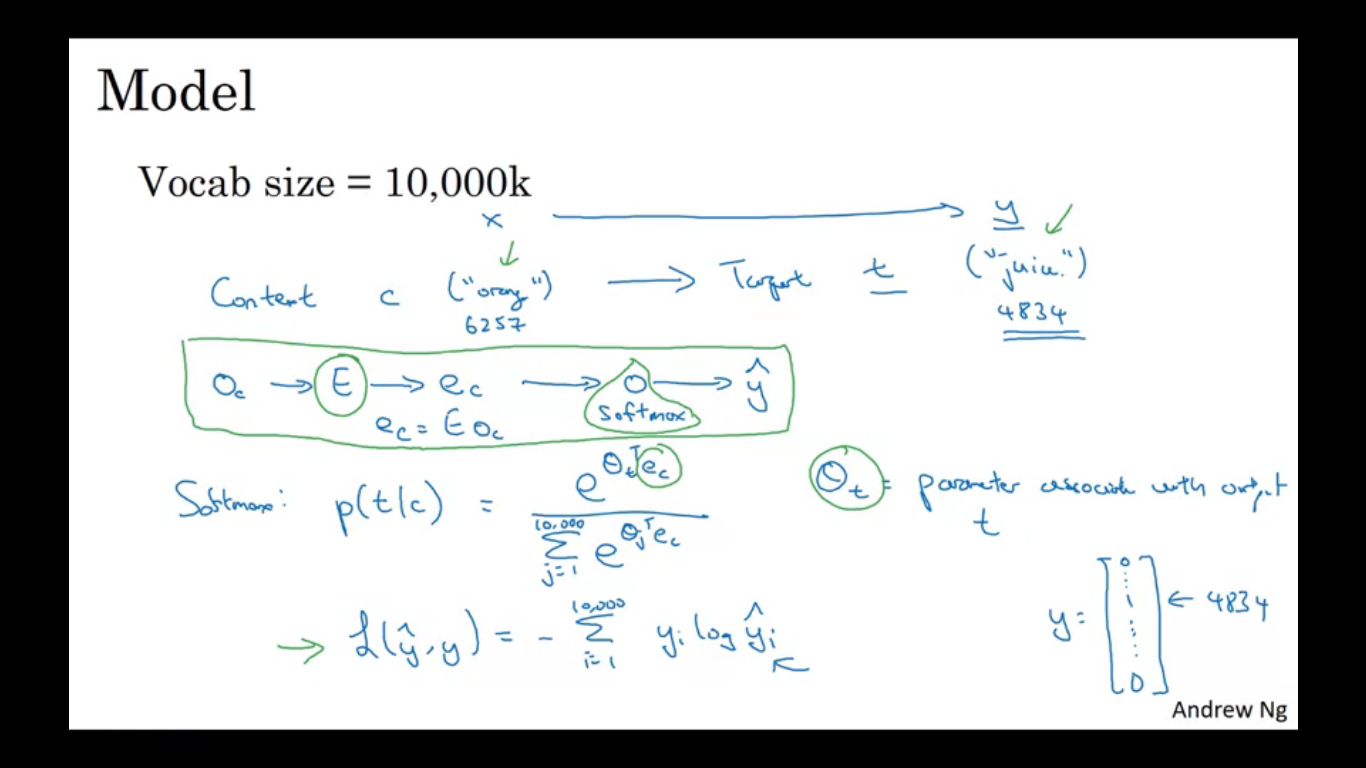 Model
Vocab size = 10,000k
x → y
Content c ("orang") → Target t ("juice")
6257 4834
O_c → E → e_c → O → ŷ
softmax
e_c = E O_c
Softmax: p(t|c) = e^{θ_t^T e_c} / Σ_{j=1}^{10,000} e^{θ_j^T e_c}
θ_t = parameter associated with output
t
→ L(ŷ, y) = - Σ_{i=1}^{10,000} y_i log ŷ_i ←
y = [0 ⋮ 1 ⋮ 0] ← 4834
Andrew Ng